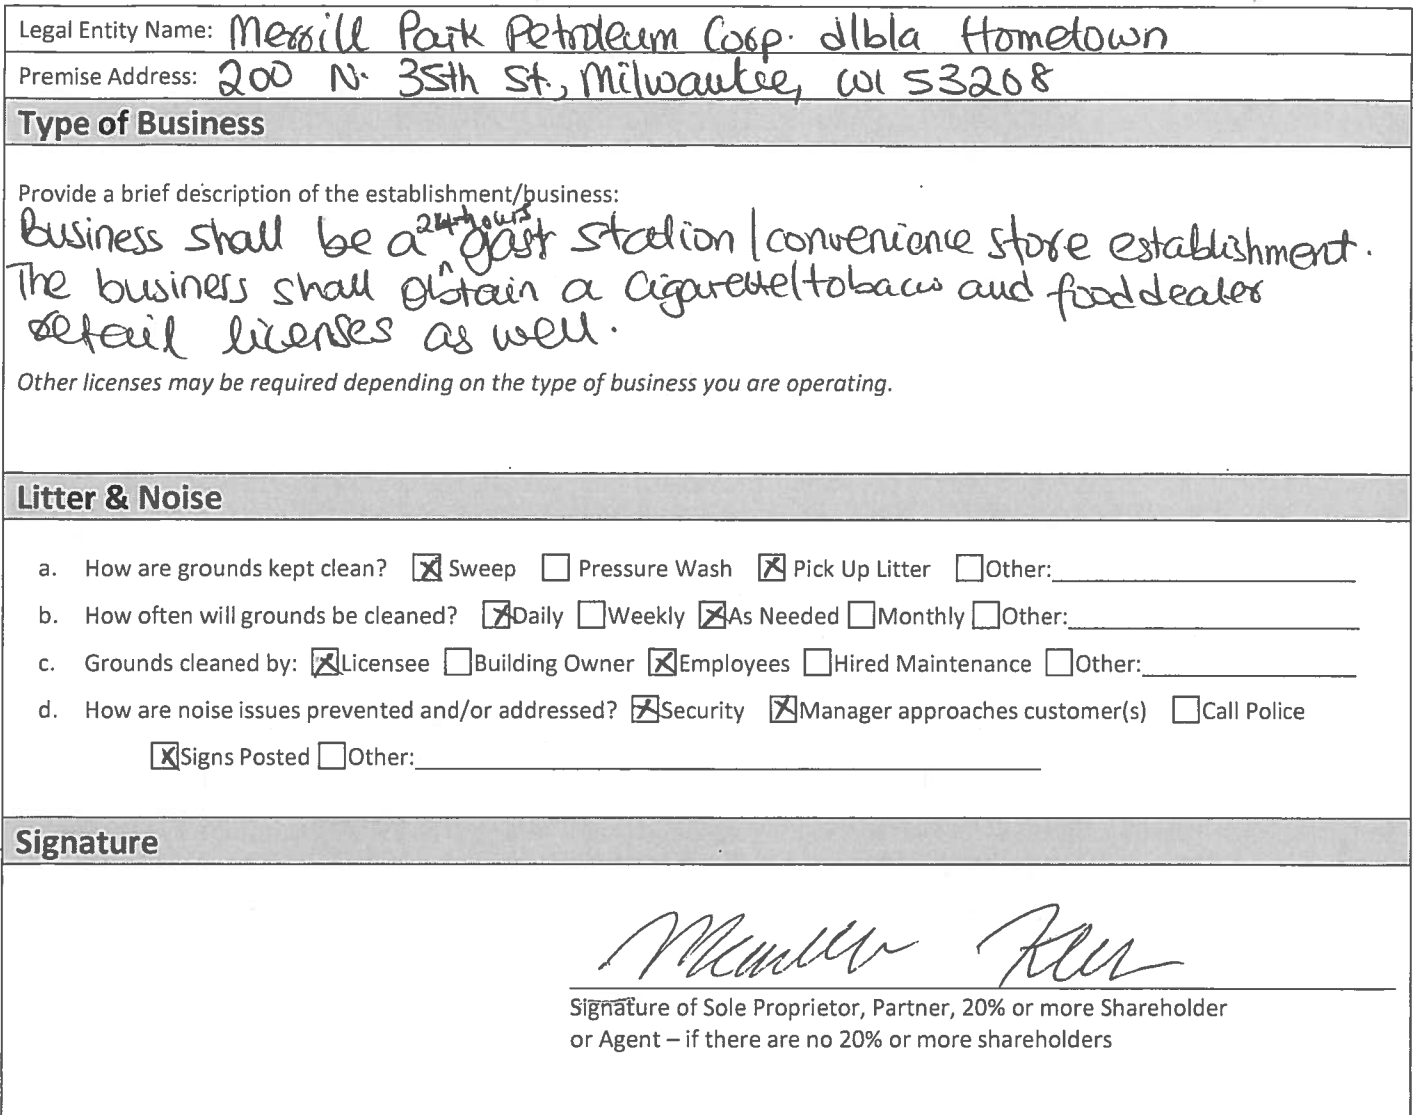 Legal Entity Name: Merrill Park Petroleum Corp. d/b/a Hometown
Premise Address: 200 N. 35th St., Milwaukee, WI 53208
Type of Business
Provide a brief description of the establishment/business:
Business shall be a 24-hours gas station/convenience store establishment.
The business shall obtain a cigarette/tobacco and food dealer
retail licenses as well.
Other licenses may be required depending on the type of business you are operating.
Litter & Noise
a. How are grounds kept clean? ☒ Sweep ☐ Pressure Wash ☒ Pick Up Litter ☐ Other:
b. How often will grounds be cleaned? ☒ Daily ☐ Weekly ☒ As Needed ☐ Monthly ☐ Other:
c. Grounds cleaned by: ☒ Licensee ☐ Building Owner ☒ Employees ☐ Hired Maintenance ☐ Other:
d. How are noise issues prevented and/or addressed? ☒ Security ☒ Manager approaches customer(s) ☐ Call Police
☒ Signs Posted ☐ Other:
Signature
Signature of Sole Proprietor, Partner, 20% or more Shareholder
or Agent – if there are no 20% or more shareholders